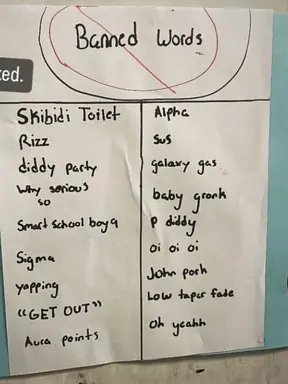 Banned Words
ked.
Skibidi Toilet
Rizz
diddy party
Why serious
so
Smart School boy 9
Sigma
yapping
"GET OUT"
Aura points
Alpha
Sus
galaxy gas
baby gronk
P diddy
oi oi oi
John pork
Low taper fade
Oh yeahh